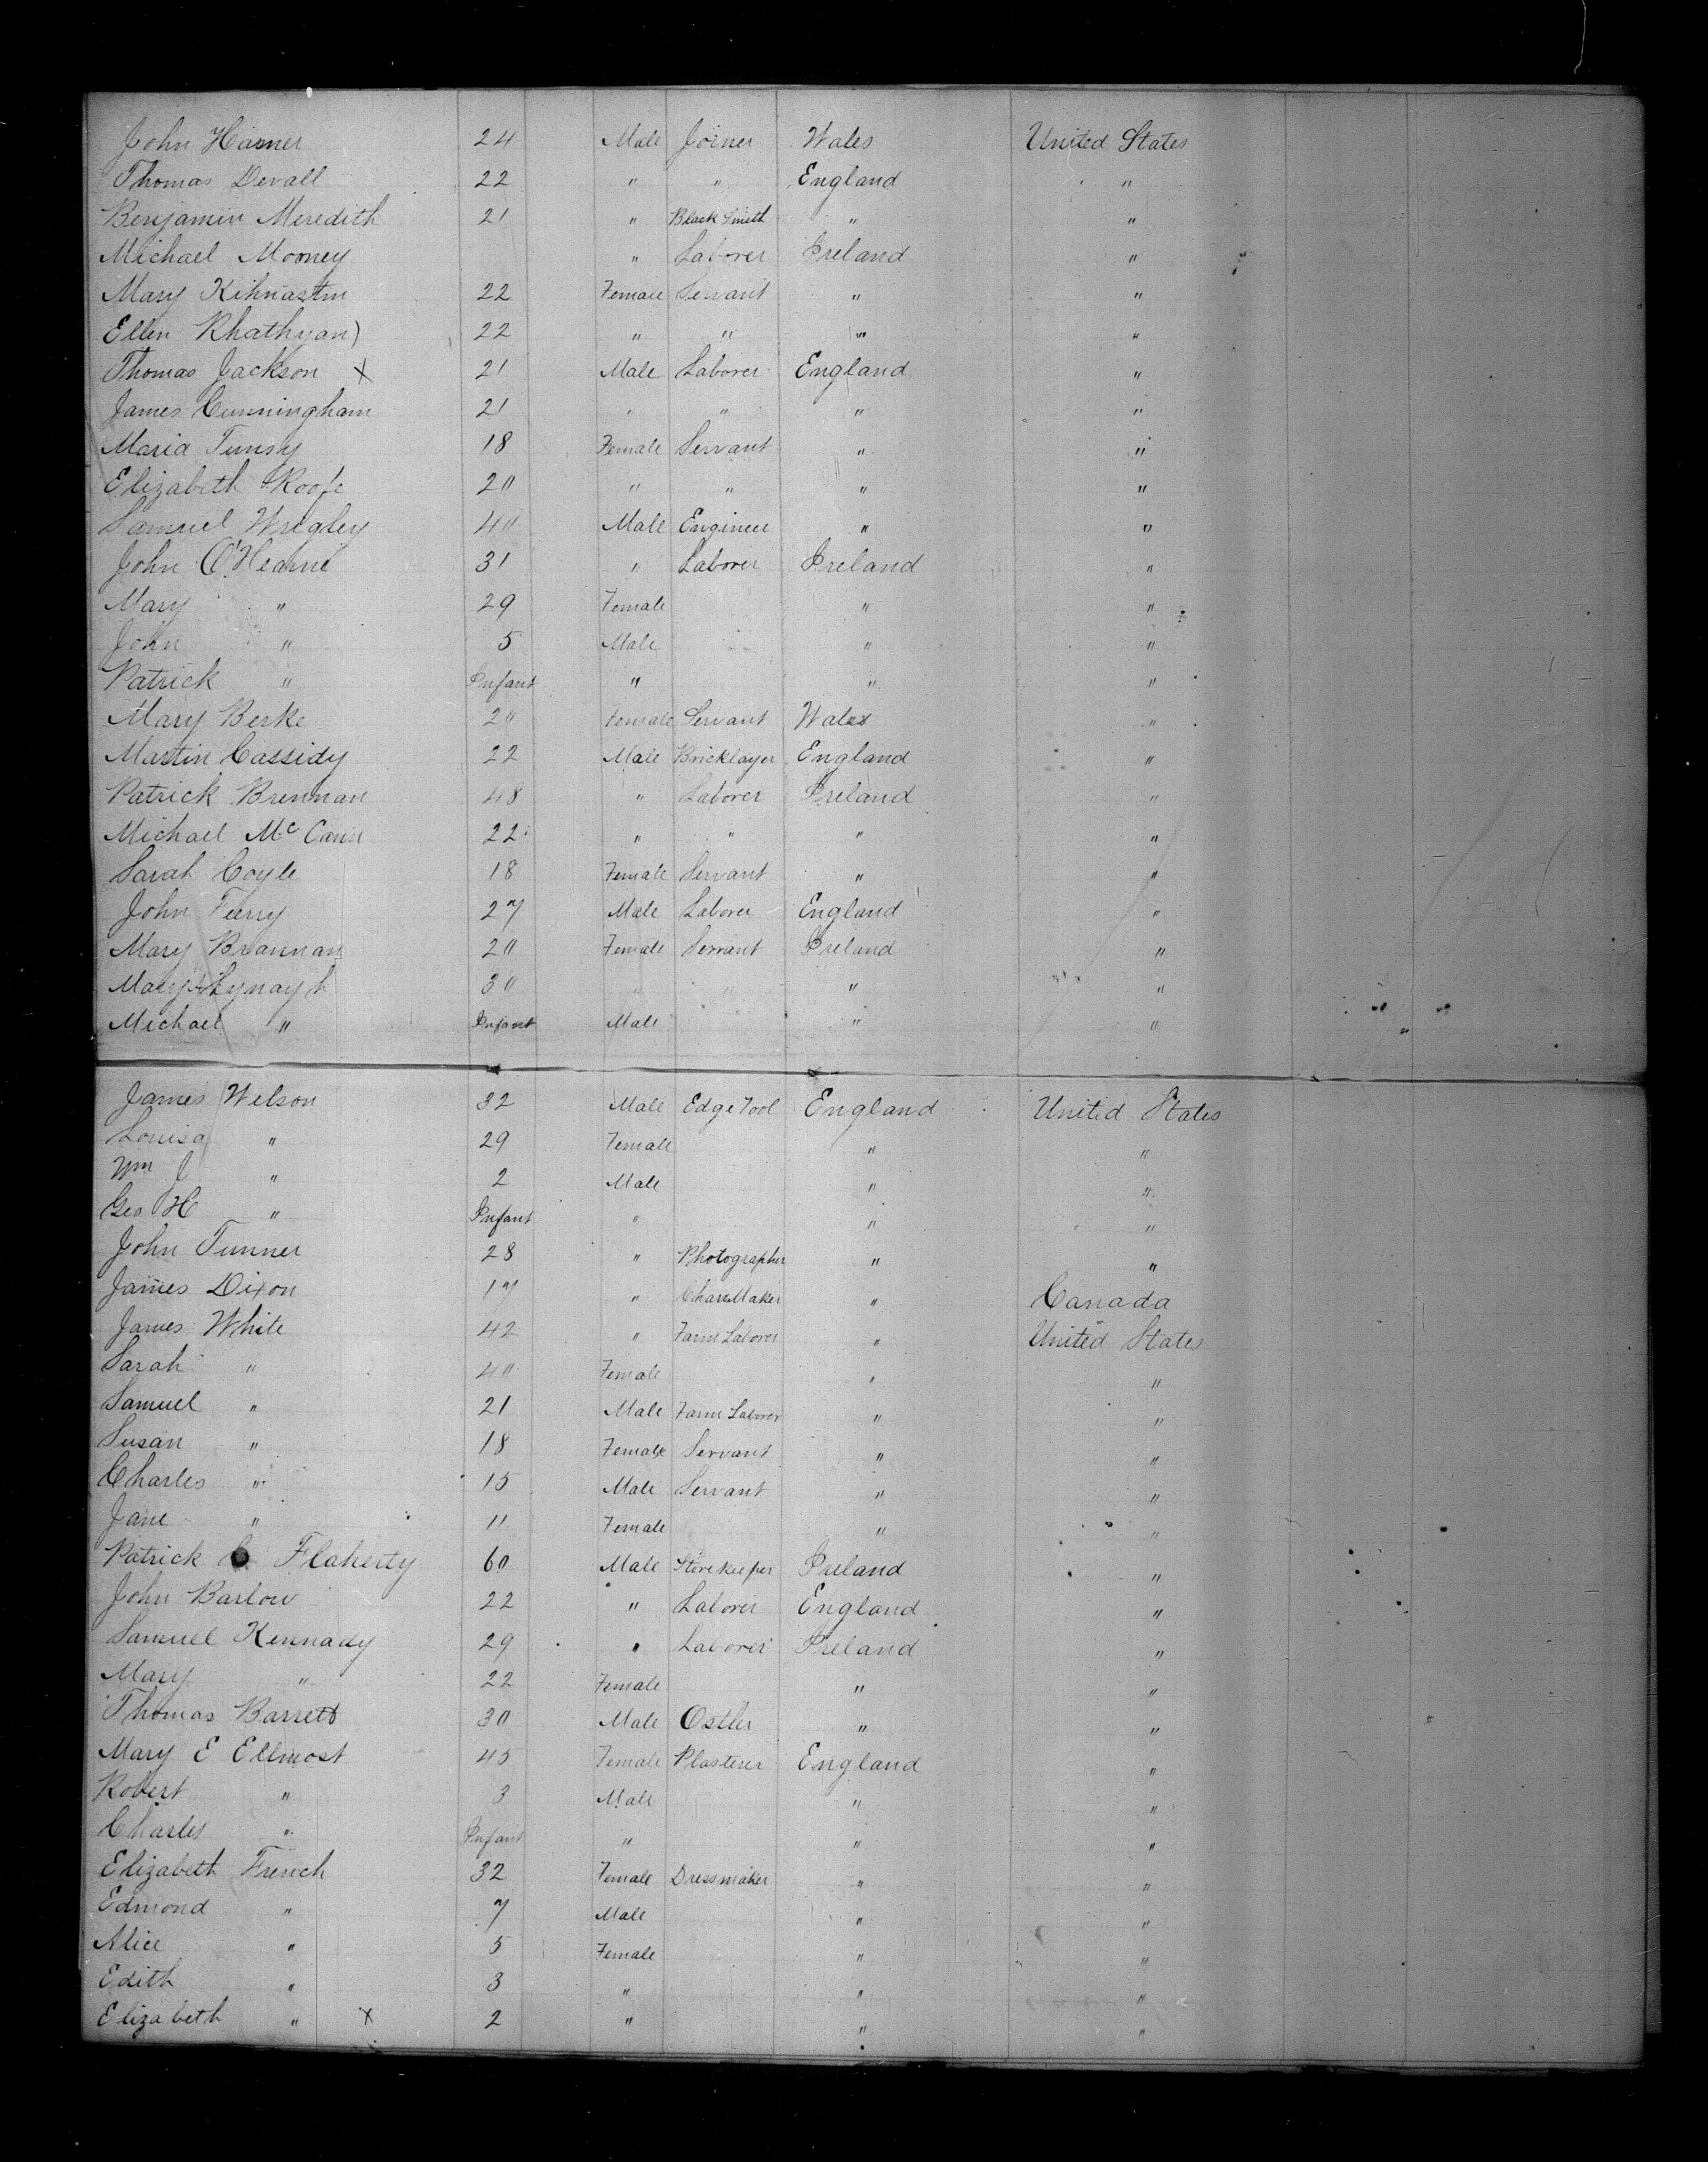 John Hamer 24 Male Joiner Wales United States
Thomas Devall 22 " " England "
Benjamin Meredith 21 " Black Smith " "
Michael Mooney " Laborer Ireland "
Mary 22 Female Servant " "
Ellen 22 " " " "
Thomas Jackson X 21 Male Laborer England "
James Cunningham 21 " " " "
Maria 18 Female Servant " "
Elizabeth 20 " " " "
Samuel Wrigley 40 Male Engineer " "
John O'Hearne 31 " Laborer Ireland "
Mary " 29 Female " "
John " 5 Male " "
Patrick " Infant " " "
Mary Berke 20 Female Servant Wales "
Martin Cassidy 22 Male Bricklayer England "
Patrick Brennan 48 " Laborer Ireland "
Michael McCann 22 " " " "
Sarah Coyle 18 Female Servant " "
John 27 Male Laborer England "
Mary Brannan 20 Female Servant Ireland "
Mary 30 " " " "
Michael " Infant Male " "
James Welson 32 Male Edge Tool England United States
Louisa " 29 Female " "
Wm J " 2 Male " "
Geo H " Infant " " "
John Tunner 28 " Photographer " "
James Dixon 17 " Chair Maker " Canada
James White 42 " Farm Laborer " United States
Sarah " 40 Female " "
Samuel " 21 Male Farm Laborer " "
Susan " 18 Female Servant " "
Charles " 15 Male Servant " "
Jane " 11 Female " "
Patrick Flaherty 60 Male Storekeeper Ireland "
John Barlow 22 " Laborer England "
Samuel Kennady 29 " Laborer Ireland "
Mary " 22 Female " "
Thomas Barrett 30 Male Ostler " "
Mary E Ellmost 45 Female Plasterer England "
Robert " 3 Male " "
Charles " Infant " " "
Elizabeth French 32 Female Dressmaker " "
Edmond " 7 Male " "
Alice " 5 Female " "
Edith " 3 " " "
Elizabeth " X 2 " " "